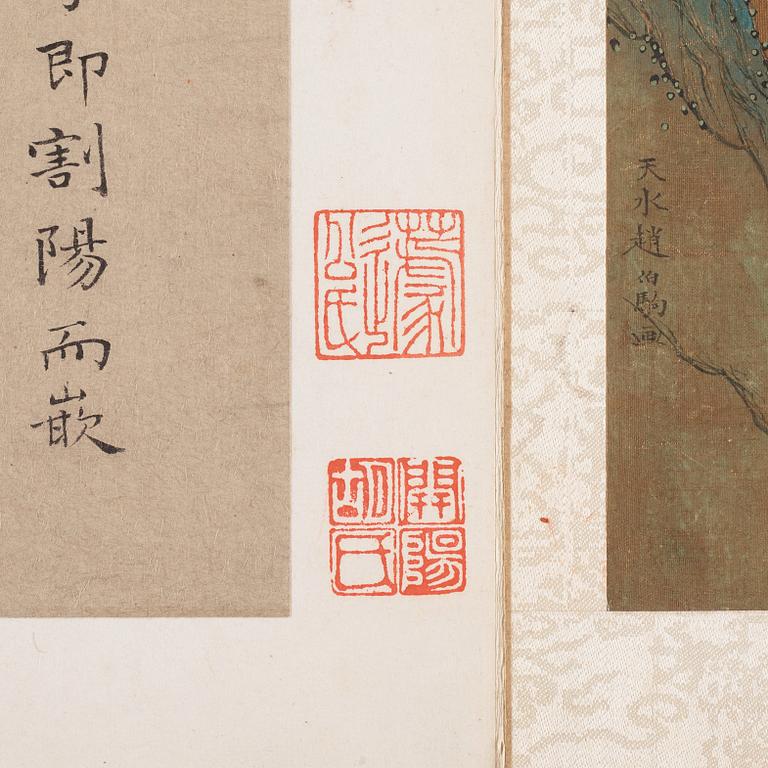 天水趙伯駒画
開陽胡氏
即割陽而嵌